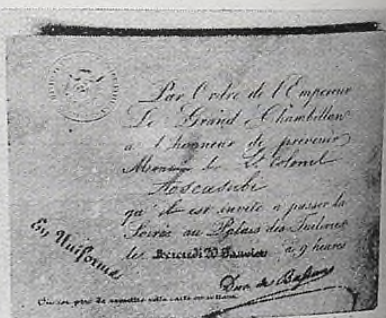 Par Ordre de l'Empereur
Le Grand Chambellan
a l'honneur de prévenir
Monsieur le Lt Colonel
Ascasubi
qu'il est invité à passer la
Soirée au Palais des Tuileries
les Mercredi Janvier à 9 heures
En Uniforme
Duc de Bassano
On est prié de remettre cette carte en